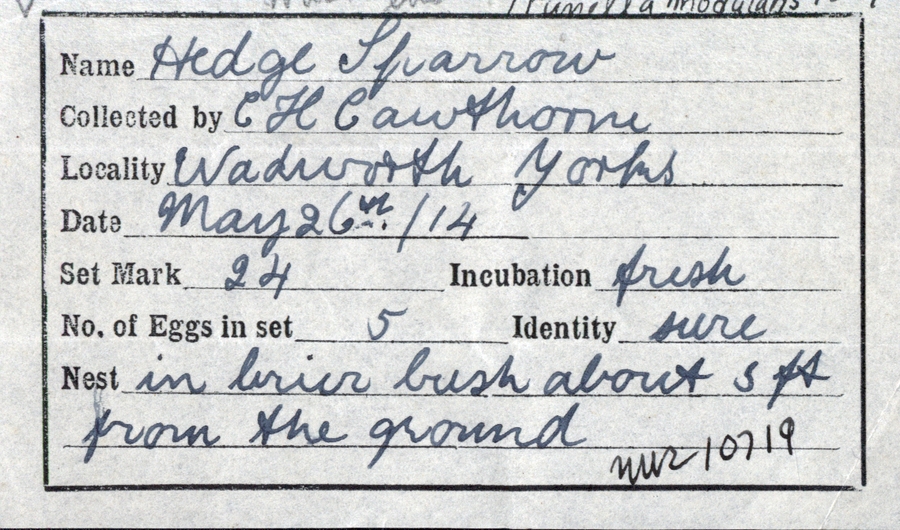 Prunella modularis
Name Hedge Sparrow
Collected by C H Cawthorne
Locality Wadworth Yorks
Date May 26th /14
Set Mark 24 Incubation fresh
No. of Eggs in set 5 Identity sure
Nest in brier bush about 3 ft
from the ground
10719